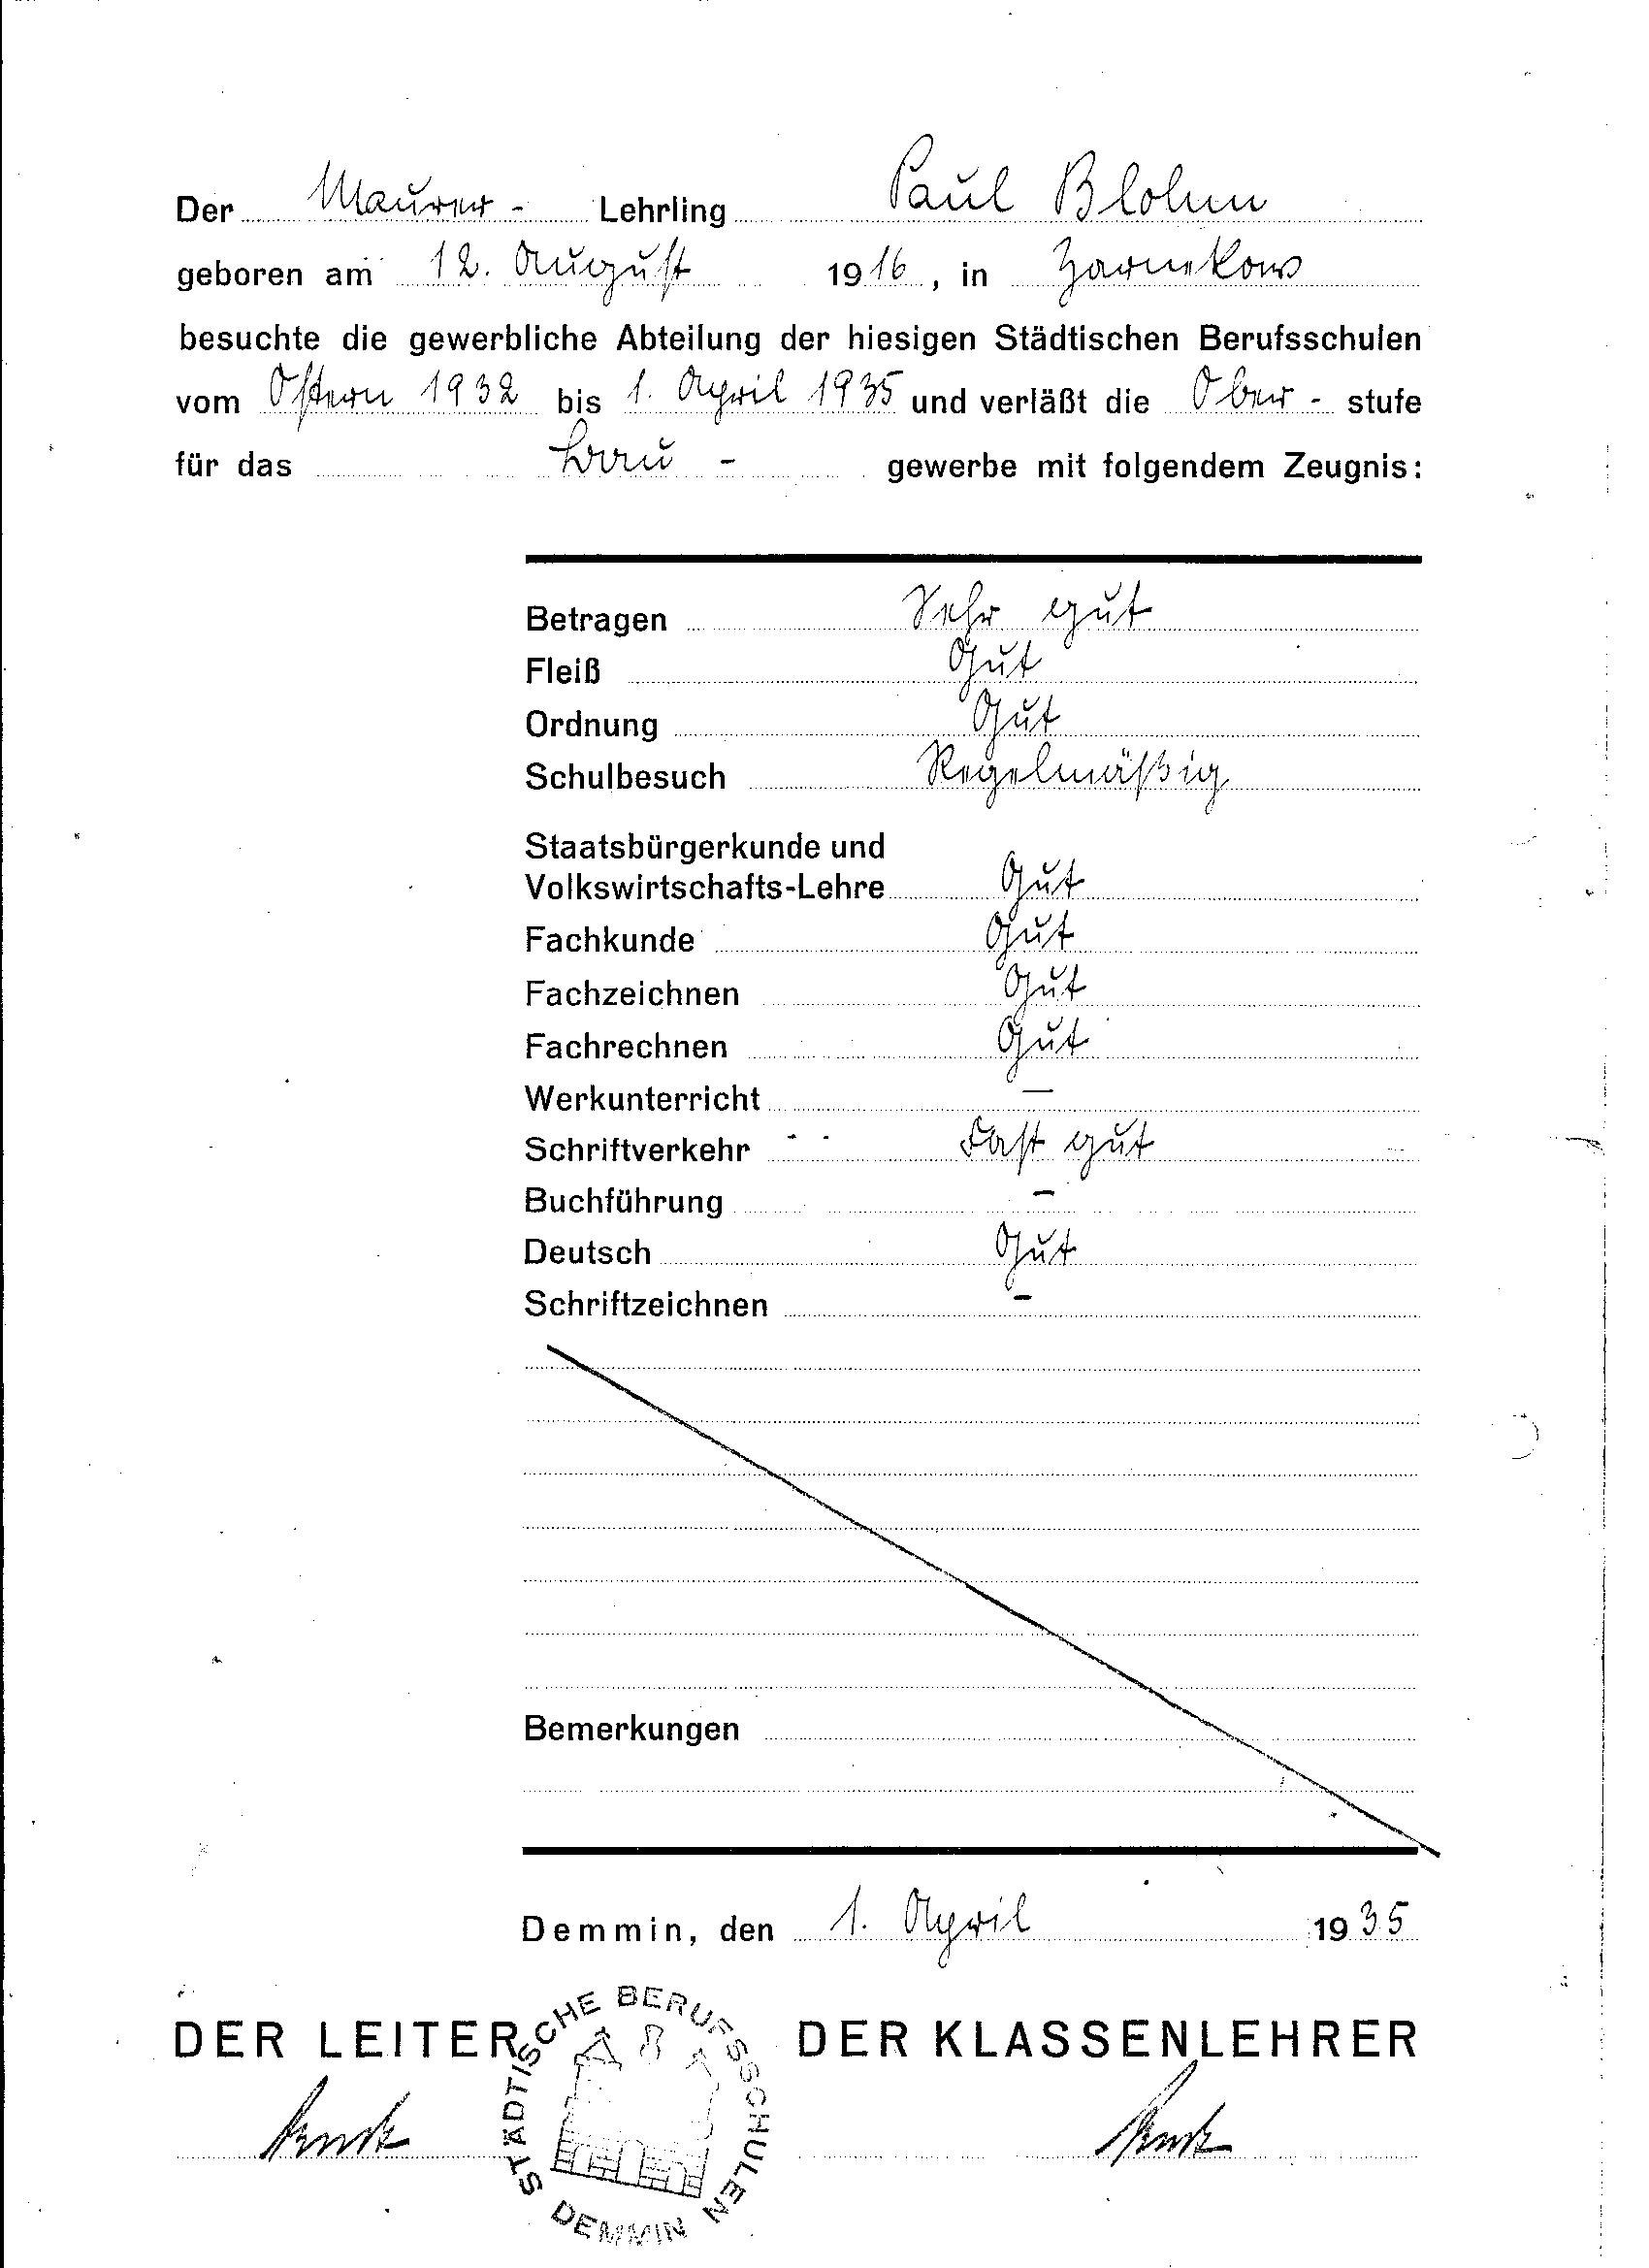 Der Maurer- Lehrling Paul Blohm
geboren am 12. August 1916, in Zarnekow
besuchte die gewerbliche Abteilung der hiesigen Städtischen Berufsschulen
vom Ostern 1932 bis 1. April 1935 und verläßt die Ober- stufe
für das Bau- gewerbe mit folgendem Zeugnis:
Betragen Sehr gut
Fleiß Gut
Ordnung Gut
Schulbesuch Regelmäßig
Staatsbürgerkunde und
Volkswirtschafts-Lehre Gut
Fachkunde Gut
Fachzeichnen Gut
Fachrechnen Gut
Werkunterricht —
Schriftverkehr Fast gut
Buchführung –
Deutsch Gut
Schriftzeichnen –
Bemerkungen
Demmin, den 1. April 1935
DER LEITER DER KLASSENLEHRER
STÄDTISCHE BERUFSSCHULEN
DEMMIN